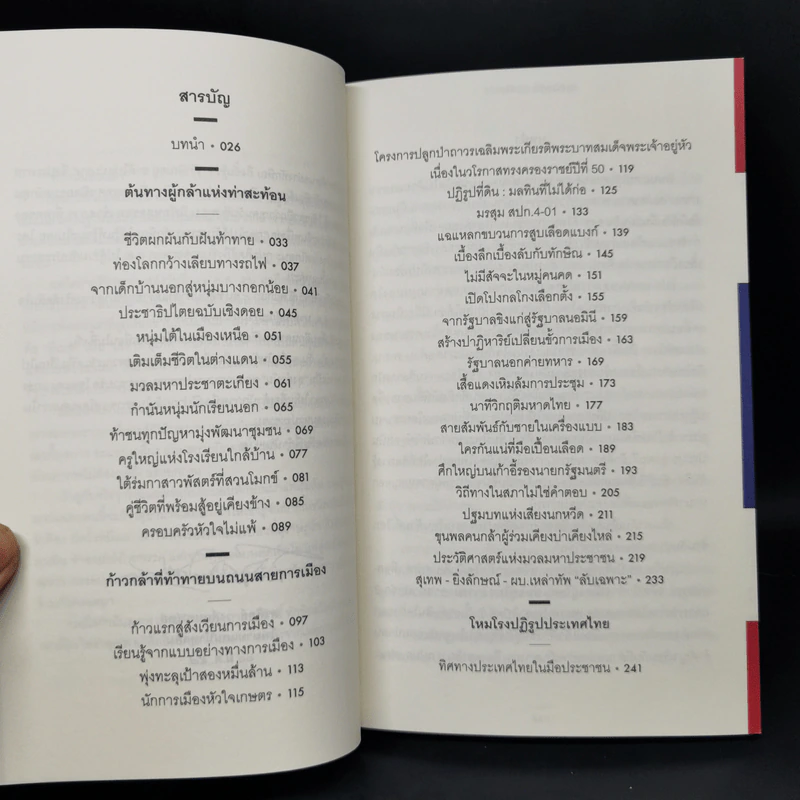 สารบัญ
บทนำ • 026
ต้นทางผู้กล้าแห่งท่าสะท้อน
ชีวิตผกผันกับฝันท้าทาย • 033
ท่องโลกกว้างเลียบทางรถไฟ • 037
จากเด็กบ้านนอกสู่หนุ่มบางกอกน้อย • 041
ประชาธิปไตยฉบับเชิงดอย • 045
หนุ่มใต้ในเมืองเหนือ • 051
เติมเต็มชีวิตในต่างแดน • 055
มวลมหาประชาตะเกียง • 061
กำนันหนุ่มนักเรียนนอก • 065
ท้าชนทุกปัญหามุ่งพัฒนาชุมชน • 069
ครูใหญ่แห่งโรงเรียนใกล้บ้าน • 077
ใต้ร่มกาสาวพัสตร์ที่สวนโมกข์ • 081
คู่ชีวิตที่พร้อมสู้อยู่เคียงข้าง • 085
ครอบครัวหัวใจไม่แพ้ • 089
ก้าวกล้าที่ท้าทายบนถนนสายการเมือง
ก้าวแรกสู่สังเวียนการเมือง • 097
เรียนรู้จากแบบอย่างทางการเมือง • 103
พุ่งทะลุเป้าสองหมื่นล้าน • 113
นักการเมืองหัวใจเกษตร • 115
โครงการปลูกป่าถาวรเฉลิมพระเกียรติพระบาทสมเด็จพระเจ้าอยู่หัว
เนื่องในวโรกาสทรงครองราชย์ปีที่ 50 • 119
ปฏิรูปที่ดิน : มลทินที่ไม่ได้ก่อ • 125
มรสุม สปก.4-01 • 133
แฉแหลกขบวนการสูบเลือดแบงก์ • 139
เบื้องลึกเบื้องลับกับทักษิณ • 145
ไม่มีสัจจะในหมู่คนคด • 151
เปิดโปงกลโกงเลือกตั้ง • 155
จากรัฐบาลขิงแก่สู่รัฐบาลนอมินี • 159
สร้างปาฏิหาริย์เปลี่ยนขั้วการเมือง • 163
รัฐบาลนอกค่ายทหาร • 169
เสื้อแดงเหิมล้มการประชุม • 173
นาทีวิกฤติมหาดไทย • 177
สายสัมพันธ์กับชายในเครื่องแบบ • 183
ใครกันแน่ที่มือเปื้อนเลือด • 189
ศึกใหญ่บนเก้าอี้รองนายกรัฐมนตรี • 193
วิถีทางในสภาไม่ใช่คำตอบ • 205
ปฐมบทแห่งเสียงนกหวีด • 211
ขุนพลคนกล้าผู้ร่วมเคียงบ่าเคียงไหล่ • 215
ประวัติศาสตร์แห่งมวลมหาประชาชน • 219
สุเทพ - ยิ่งลักษณ์ - ผบ.เหล่าทัพ “ลับเฉพาะ” • 233
โหมโรงปฏิรูปประเทศไทย
ทิศทางประเทศไทยในมือประชาชน • 241